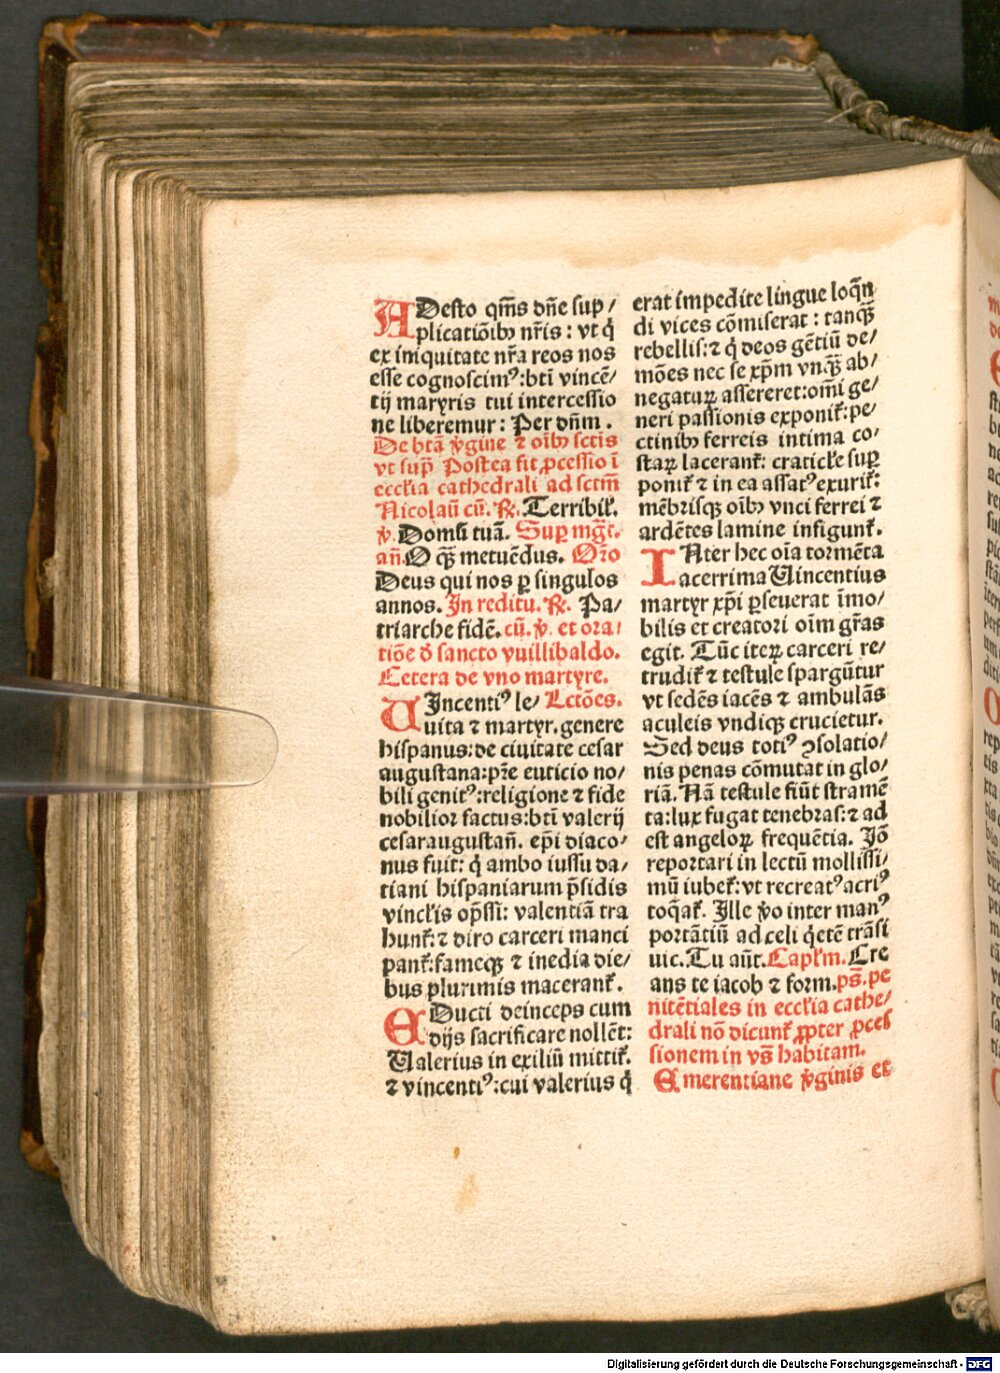 ADesto qm̄s dn̄e sup/
plicatiōibꝫ nr̄is : vt q̇
ex iniquitate nr̄a reos nos
esse cognoscimꝰ:bt̄i vincē/
tij martyris tui intercessio
ne liberemur : Per dn̄m .
De bt̄a v̇gine ⁊ oībꝫ sctīs
vt sup̄ Postea fit ꝓcessio ī
eccl̄ia cathedrali ad sct̄m
Nicolaū cū. ℟. Terribil̄.
℣. Domū tuā. Suꝑ mḡt.
añ. O qꝫ̄ metuēdus. Or̄o
Deus qui nos ꝑ singulos
annos. In reditu. ℟. Pa/
triarche fidē. cū. ℣. et ora/
tiōe d̄ sancto vuillibaldo.
Cetera de vno martyre.
VIncentiꝰ le/ Lctōes.
uita ⁊ martyr. genere
hispanus:de ciuitate cesar
augustana:pr̄e euticio no/
bili genitꝰ:religione ⁊ fide
nobilior factus:bt̄i valerij
cesaraugustañ. ep̄i diaco/
nus fuit: q̇ ambo iussu da/
tiani hispaniarum p̄sidis
vincl̄is op̄ssi: valentiā tra
hunt̄:⁊ diro carceri manci
pant̄:fameqꝫ ⁊ inedia die/
bus plurimis macerant̄.
EDucti deinceps cum
dijs sacrificare nollēt:
Valerius in exiliū mittit̄.
⁊ vincentiꝰ:cui valerius q̇
erat impedite lingue loq̄n
di vices cōmiserat : tanqꝫ̄
rebellis:⁊ q̇ deos gētiū de/
mōes nec se xp̄m vnqꝫ̄ ab/
negaturꝫ assereret:om̄i ge/
neri passionis exponit̄:pe/
ctinibꝫ ferreis intima co/
staꝝ lacerant̄: craticl̄e suꝑ
ponit̄ ⁊ in ea assatꝰ exurit̄:
mēbrisqꝫ oībꝫ vnci ferrei ⁊
ardētes lamine insigunt̄.
INter hec oīa tormēta
acerrima Vincentius
martyr xp̄i ꝑseuerat īmo/
bilis et creatori oīm gr̄as
egit. Tūc iteꝝ carceri re/
trudit̄ ⁊ testule spargūtur
vt sedēs iacēs ⁊ ambulās
aculeis vndiqꝫ crucietur.
Sed deus totiꝰ ↄsolatio/
nis penas cōmutat in glo/
riā. Nā testule fiūt stramē
ta:lux fugat tenebras:⁊ ad
est angeloꝝ frequētia. Iō
reportari in lectū mollissi/
mū iubet̄:vt recreatꝰ acriꝰ
toq̄at̄. Ille v̇o inter manꝰ
portātiū ad celi q̇etē trāsi
uic. Tu aūt. Capl̄m. Cre
ans te iacob ⁊ form. pš. pe
nitētiales in eccl̄ia cathe/
drali nō dicunt̄ ꝓpter ꝓces
sionem in vš habitam.
Emerentiane v̇ginis et
Digitalisierung gefördert durch die Deutsche Forschungsgemeinschaft - DFG